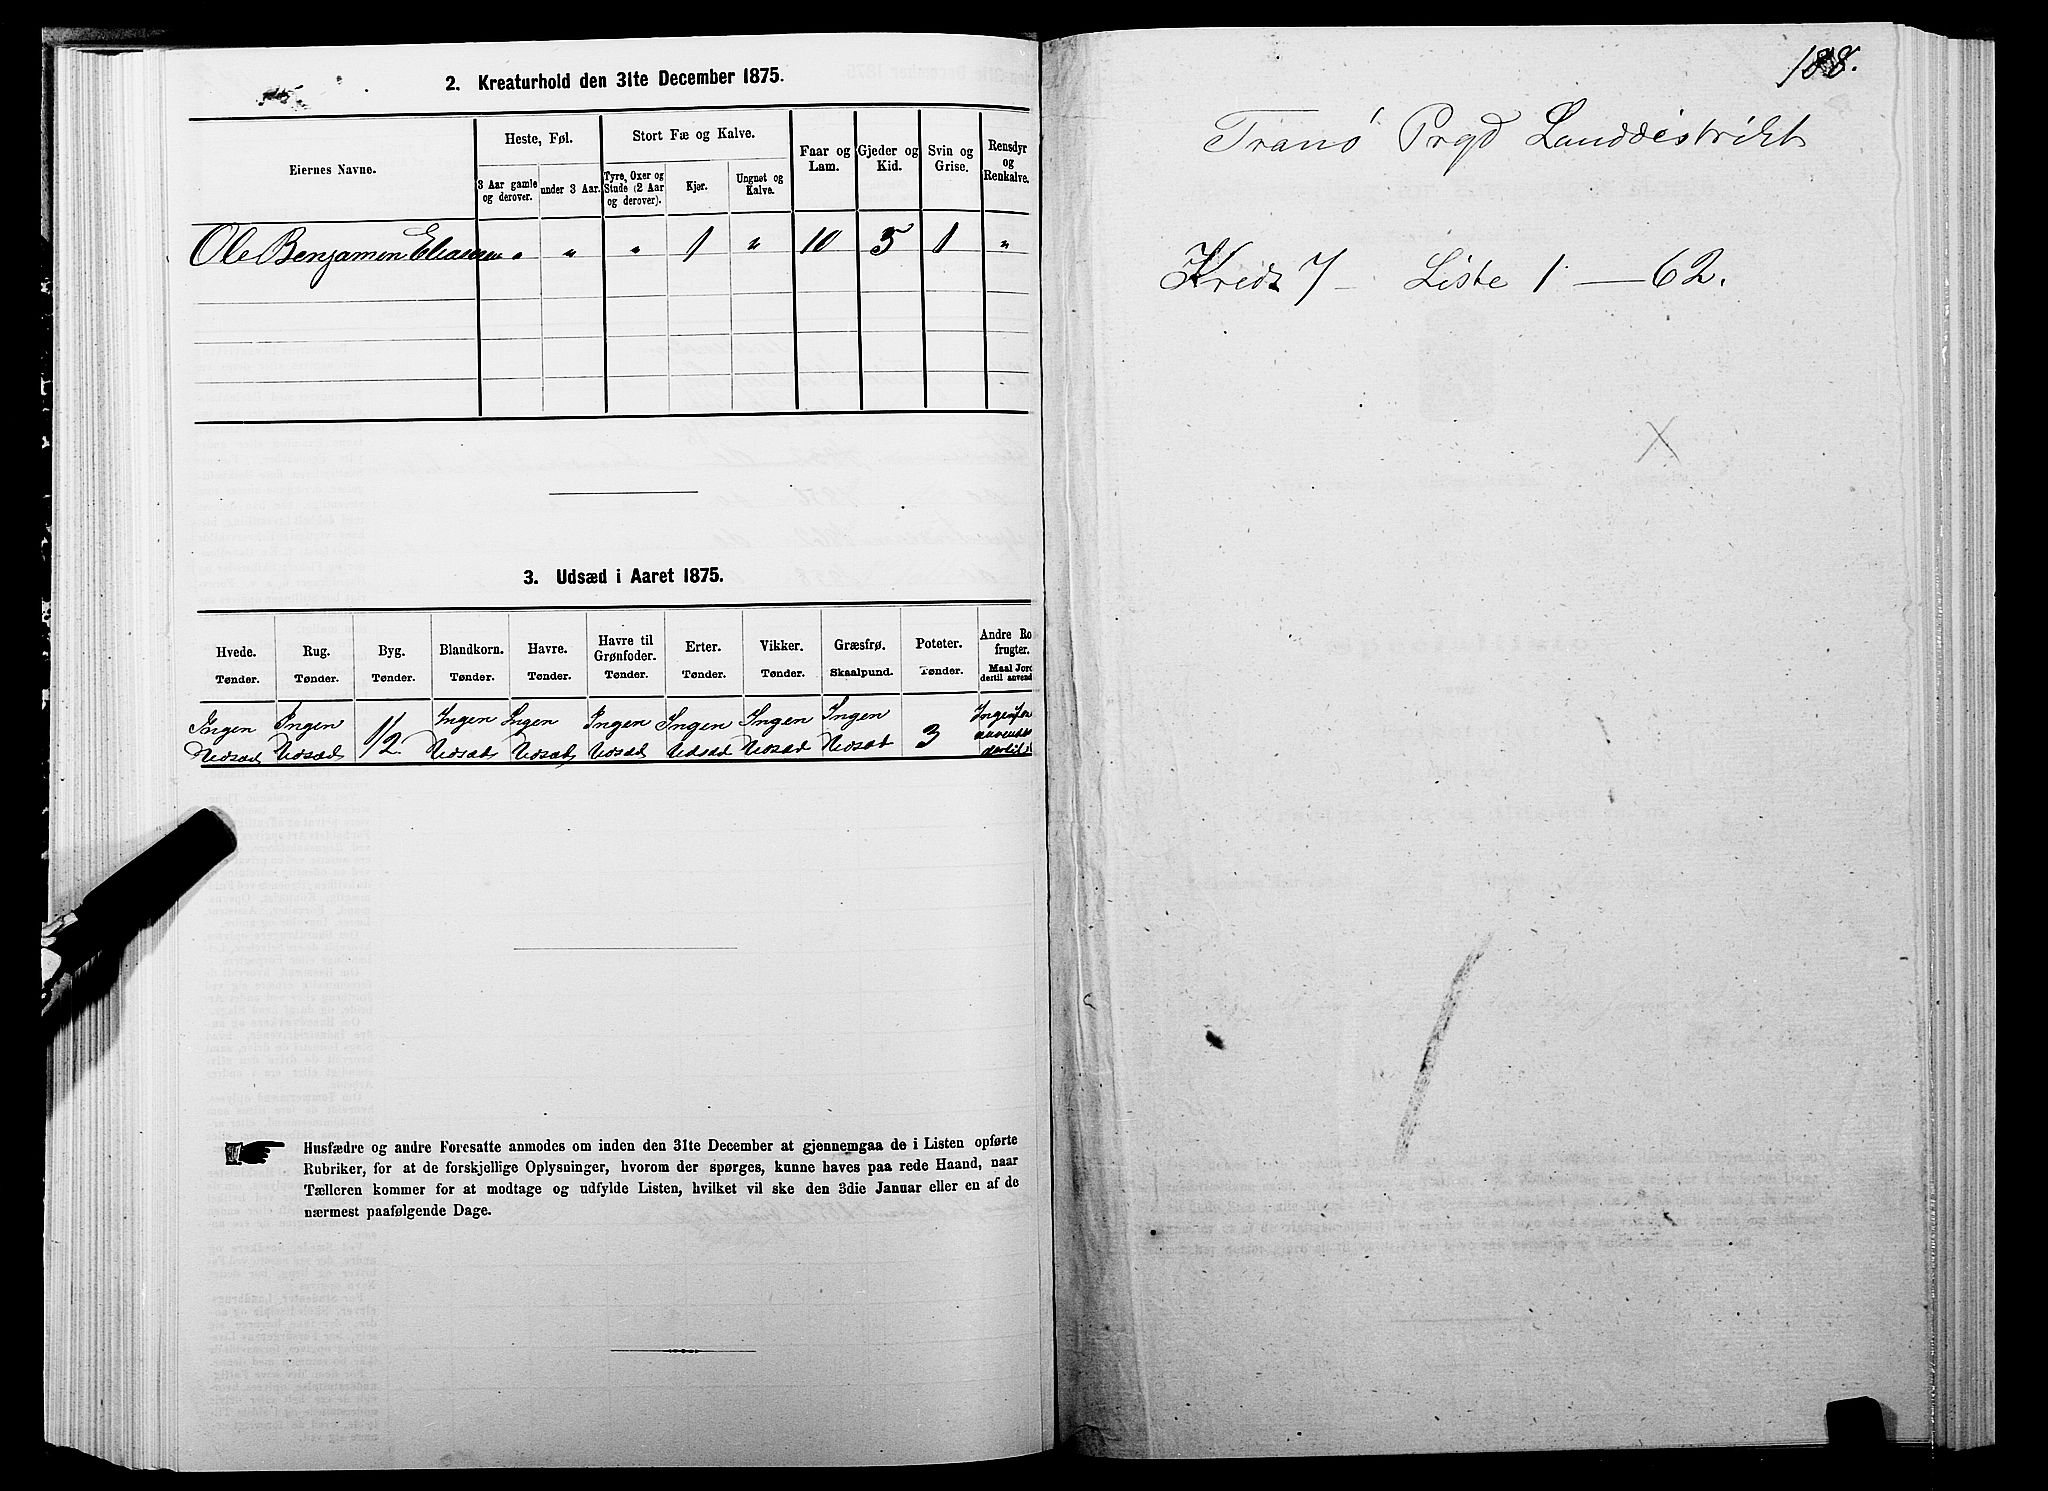 2. Kreaturhold den 31te December 1875.
Eiernes Navne.
Heste, Føl.
Stort Fæ og Kalve.
3 Aar gamle og derover.
under 3 Aar.
Tyre, Oxer og Stude (2 Aar og derover).
Kjør.
Ungnet og Kalve.
Faar og Lam.
Gjeder og Kid.
Svin og Grise.
Rensdyr og Renkalve.
Ole Benjamen Eliassen " " " 1 " 10 5 1 "
3. Udsæd i Aaret 1875.
Hvede. Rug. Byg. Blandkorn. Havre. Havre til Grønfoder. Erter. Vikker. Græsfrø. Poteter. Andre Ro frugter.
Tønder. Tønder. Tønder. Tønder. Tønder. Tønder. Tønder. Tønder. Skaalpund. Tønder. Maal Jord dertil anvend
Ingen Ingen 1/2. Ingen Ingen Ingen Ingen Ingen Ingen 3
Udsæd Udsæd Udsæd Udsæd Udsæd Udsæd Udsæd Udsæd dertil
Husfædre og andre Foresatte anmodes om inden den 31te December at gjennemgaa de i Listen opførte
Rubriker, for at de forskjellige Oplysninger, hvorom der spørges, kunne haves paa rede Haand, naar
Tælleren kommer for at modtage og udfylde Listen, hvilket vil ske den 3die Januar eller en af de
nærmest paafølgende Dage.
188.
Tranö Prgd Landdistrikt
Kreds 7 - Liste 1 — 62.